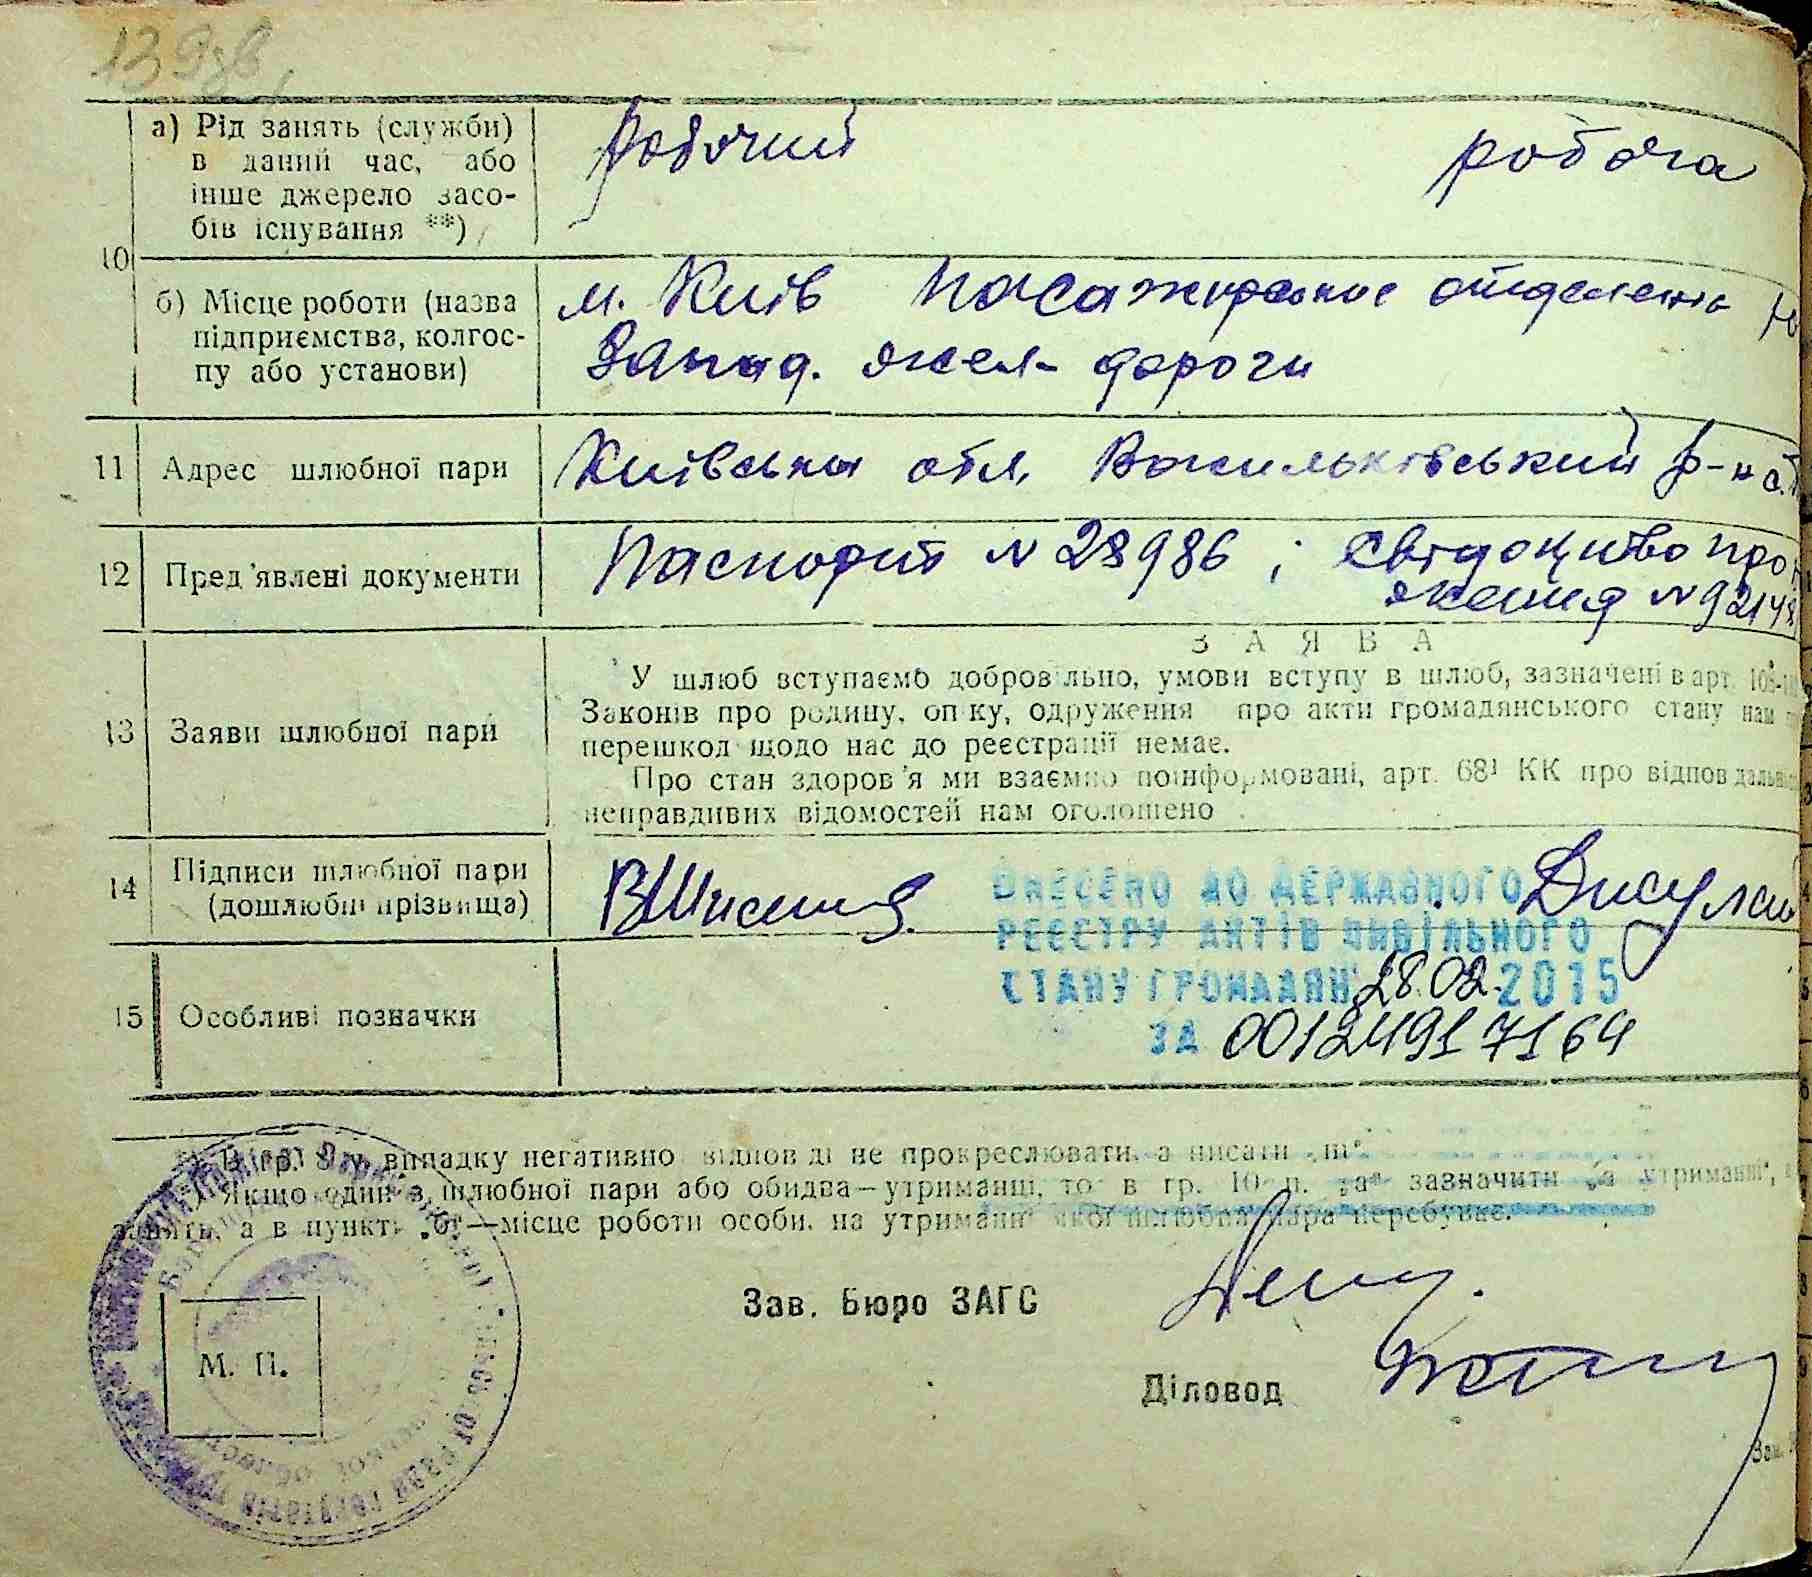 10
а) Рід занять (служби)
в даний час, або
інше джерело засо-
бів існування **)
робочий робоча
б) Місце роботи (назва
підприємства, колгос-
пу або установи)
м. Київ
Запад. жел. дороги
11 Адрес шлюбної пари
Київська обл. Васильківський р-н с.
12 Пред'явлені документи
Паспорт № 28986 ; свідоцтво про
№ 92148
ЗАЯВА
13 Заяви шлюбної пари
У шлюб вступаємо добровільно, умови вступу в шлюб, зазначені в арт. 105
Законів про родину, опіку, одруження про акти громадянського стану нам
перешкод щодо нас до реєстрації немає.
Про стан здоров'я ми взаємно поінформовані, арт. 68¹ КК про відповідальн
неправдивих відомостей нам оголошено
14 Підписи шлюбної пари
(дошлюбні прізвища)
ВНЕСЕНО ДО ДЕРЖАВНОГО
РЕЄСТРУ АКТІВ ЦИВІЛЬНОГО
СТАНУ ГРОМАДЯН 28.02.2015
ЗА 00124917164
15 Особливі позначки
*) В гр. 9 у випадку негативно відповіді не прокреслювати, а писати „ні“
**) Якщо один з шлюбної пари або обидва—утриманці, то в гр. 10 п. „а“ зазначити „на утриманні“,
занять, а в пункті „б“—місце роботи особи, на утриманні якої шлюбна пара перебуває.
Зав. Бюро ЗАГС
М. П.
Діловод